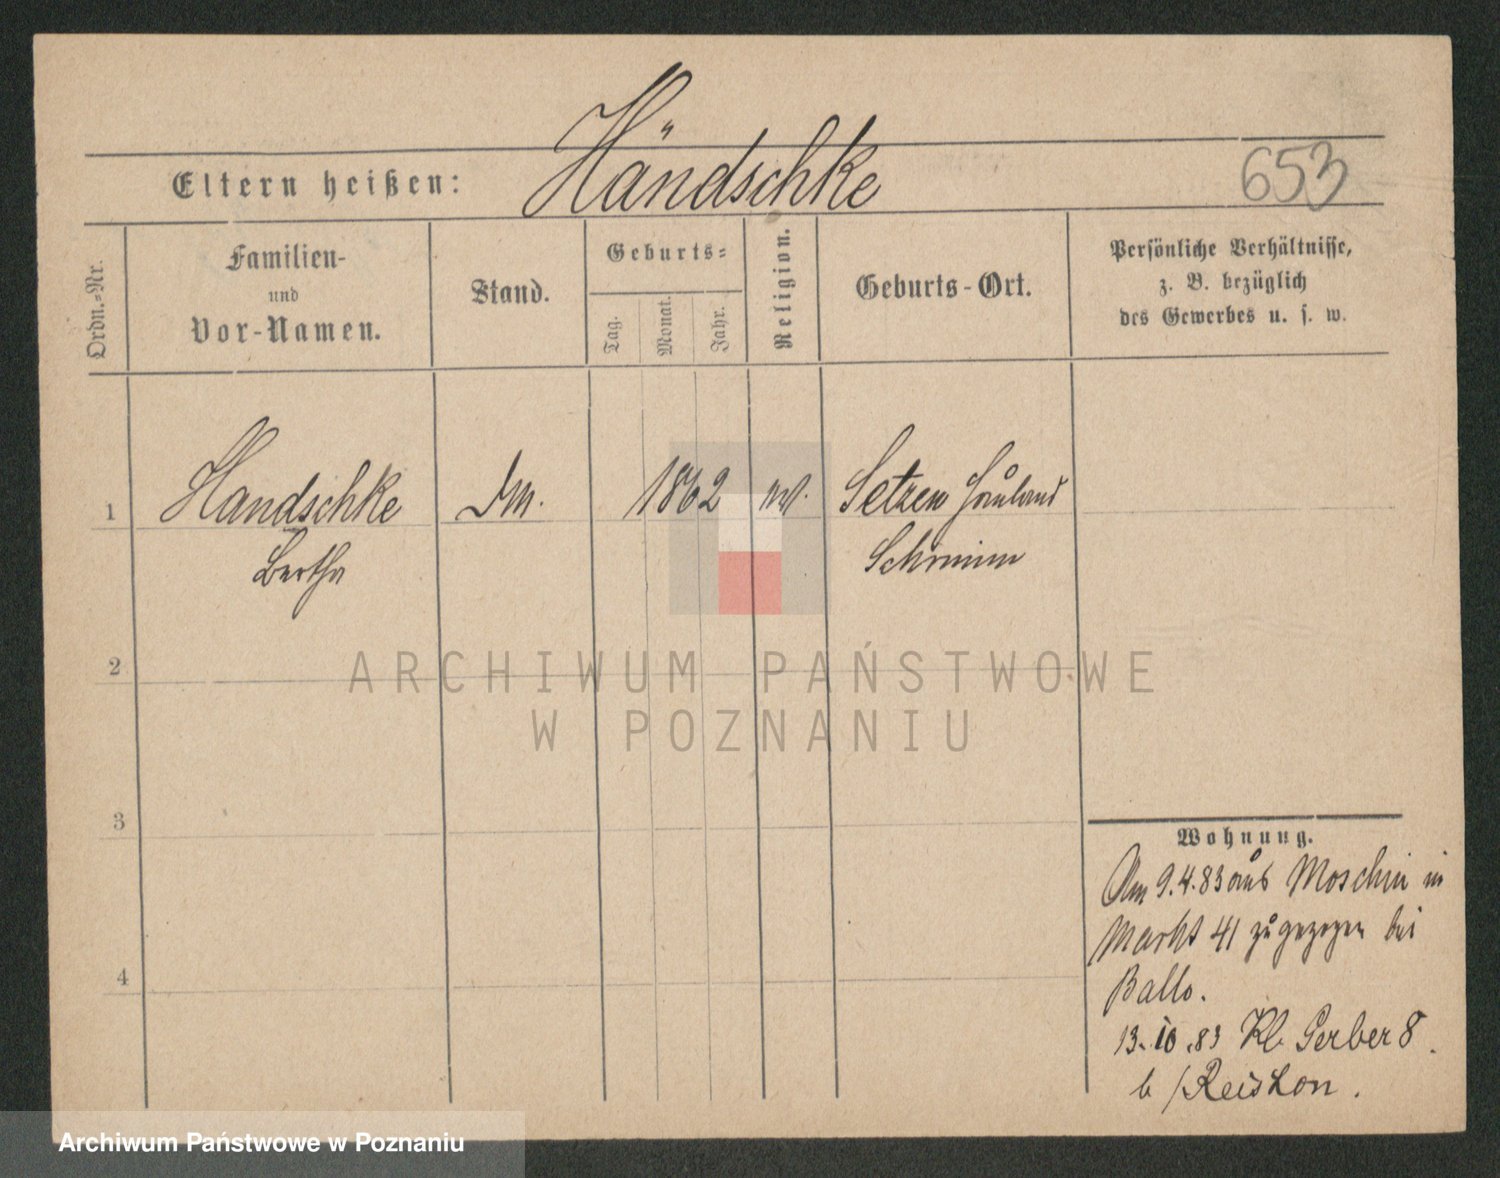 Händschke
Eltern heißen:
653
Ordn.-Nr.
Familien-
und
Vor-Namen.
Stand.
Geburts-
Tag.
Monat.
Jahr.
Religion.
Geburts-Ort.
Persönliche Verhältnisse,
z. B. bezüglich
des Gewerbes u. s. w.
1
Handschke
Bertha
1862
Setzen Hauland
Schrimm
2
ARCHIWUM PAŃSTWOWE
W POZNANIU
3
4
Wohnung.
Am 9.4.83 aus Moschin in
Markt 41 zugezogen bei
Ballo.
13.10.83 Kl. Gerber 8.
b/
Archiwum Państwowe w Poznaniu